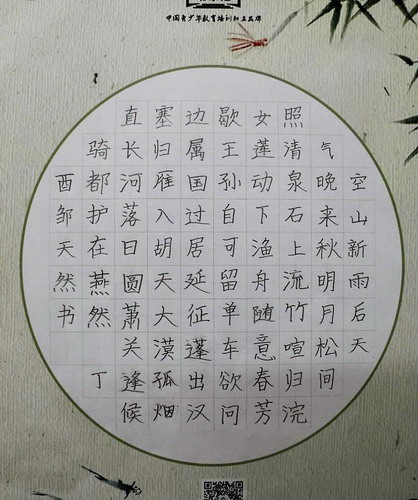 中国青少年教育培训知名品牌
空山新雨后天
气晚来秋明月松间
照清泉石上流竹喧归浣
女莲动下渔舟随意春芳
歇王孙自可留单车欲问
边属国过居延征蓬出汉
塞归雁入胡天大漠孤烟
直长河落日圆萧关逢候
骑都护在燕然 丁
酉邹天然书